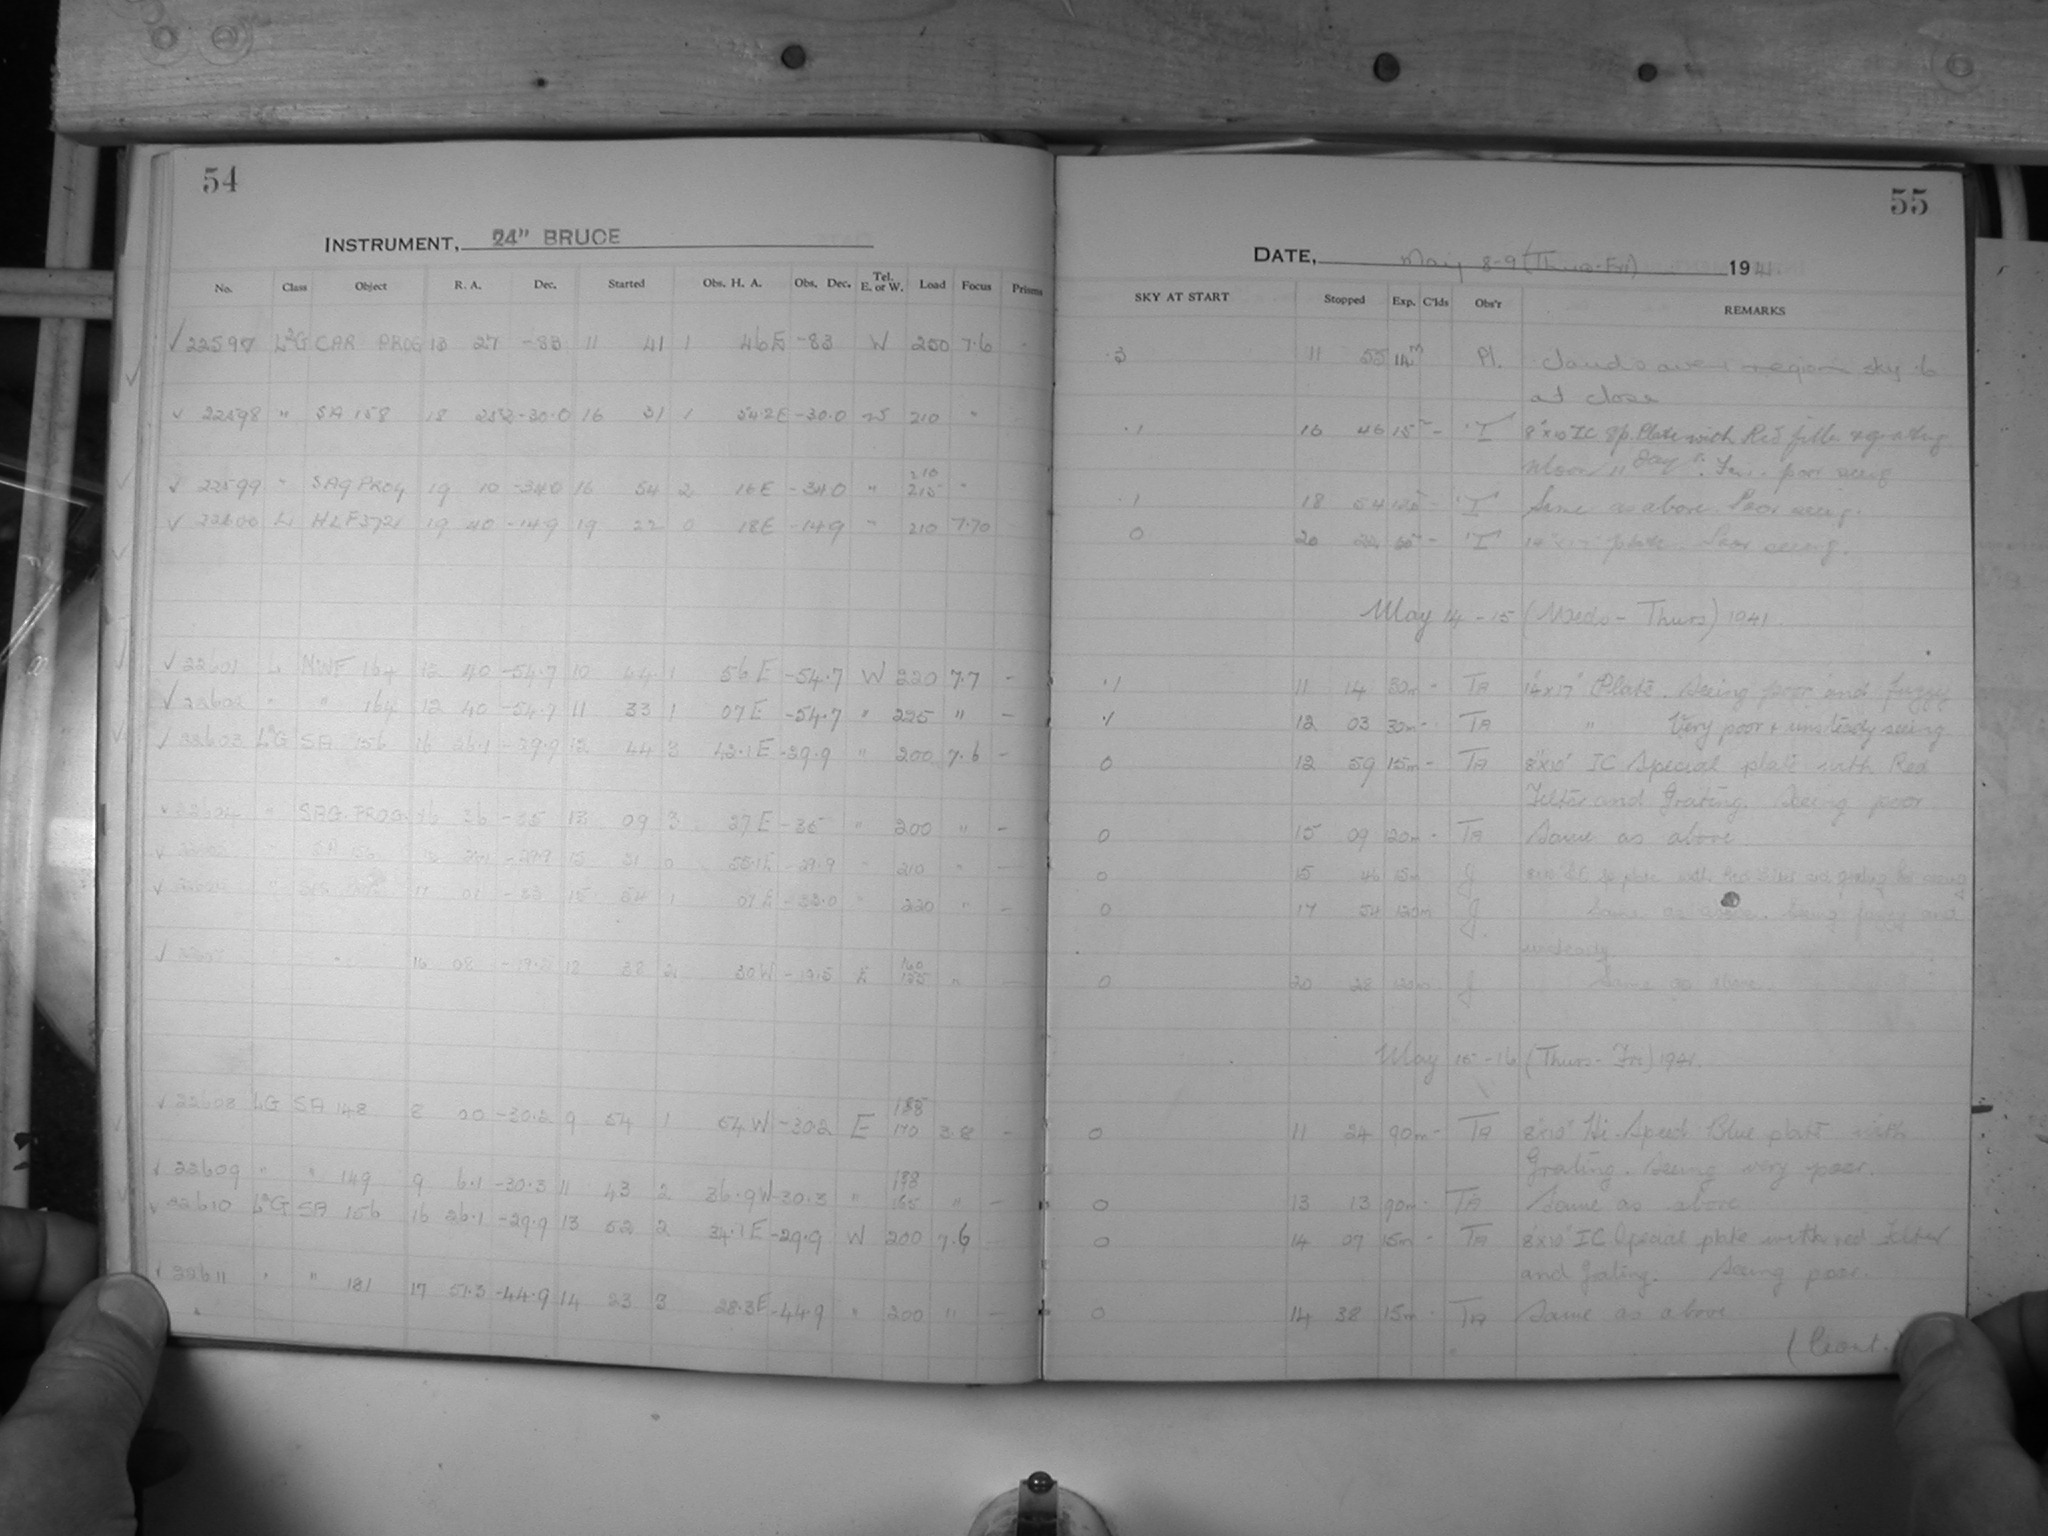 54
INSTRUMENT, 24" BRUCE
No. Class Object R. A. Dec. Started Obs. H. A. Obs. Dec. Tel. E. or W. Load Focus Prisms
✓ 22597 CAR PROG 13 27 -83 11 41 1 46E -83 W 200 7.6 -
✓ 22598 " SA 158 18 -30.0 16 31 1 54.2E -30.0 W 210 "
✓ 22599 " SAG PROG 19 10 -34.0 16 54 2 16E -34.0 " 210 215 "
✓ 22600 L 19 40 -14.9 19 22 0 18E -14.9 " 210 7.70
✓ 22601 L NWF 164 12 40 -54.7 10 44 1 56E -54.7 W 220 7.7 -
✓ 22602 " " 164 12 40 -54.7 11 33 1 07E -54.7 " 225 " -
✓ 22603 L²G SA 156 16 26.1 -29.9 12 44 3 42.1E -29.9 " 200 7.6 -
✓ 22604 " SAG. PROG. 16 36 -35 13 09 3 27E -35 " 200 " -
✓ " SA 156 -29.9 15 31 0 55.1E -29.9 " 210 " -
✓ 17 01 -33 15 54 1 07E -33.0 " 220 " -
✓ 16 08 18 38 2 30W -19.5 E 160 155 " -
✓ 22608 LG SA 148 8 00 -30.2 9 54 1 54W -30.2 E 185 170 3.8 -
✓ 22609 " " 149 9 6.1 -30.3 11 43 2 36.9W -30.3 " 165 " -
✓ 22610 L²G SA 156 16 26.1 -29.9 13 52 2 34.1E -29.9 W 200 7.6 -
✓ 22611 " " 181 17 51.3 -44.9 14 23 3 28.3E -44.9 " 200 " -
55
DATE, May 8-9 (Thurs-Fri) 1941
SKY AT START Stopped Exp. C'lds Obs'r REMARKS
.3 11 55 14m Pl. clouds over region sky .6
at close
.1 16 46 15m - 'I' 8"x10" IC Sp. Plate with Red filter & grating
Moon 11 days. poor seeing
.1 18 54 120m - 'I' Same as above. Poor seeing.
0 20 22 60m - 'I' plate. Poor seeing.
May 14 - 15 (Weds - Thurs) 1941.
.1 11 14 30m - TA 14"x17" Plate. Seeing poor and fuzzy
.1 12 03 30m - TA " Very poor & unsteady seeing
0 12 59 15m - TA 8"x10" IC Special plate with Red
Filter and Grating. Seeing poor
0 15 09 120m - TA Same as above
0 15 46 15m J 8x10 IC Sp plate with Red filter and grating seeing
0 17 54 120m J Same as above. Seeing fuzzy and
unsteady
0 20 38 120m J Same as above.
May 15-16 (Thurs-Fri) 1941.
0 11 24 90m - TA 8"x10" Hi-Speed Blue plate with
Grating. Seeing very poor.
0 13 13 90m - TA Same as above
0 14 07 15m - TA 8"x10" IC Special plate with red Filter
and Grating. Seeing poor.
0 14 38 15m - TA Same as above
(Cont.)